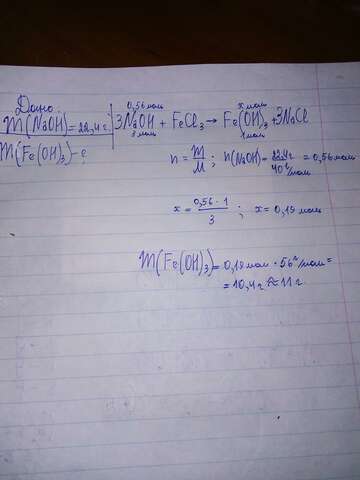 Дано:
m(NaOH)=22,4г.
m(Fe(OH)₃)-?
0,56моль x моль
3NaOH + FeCl₃ → Fe(OH)₃+3NaCl
3моль 1моль
n = m/M ; n(NaOH)= 22,4г/40г/моль = 0,56моль
x = 0,56·1/3 ; x = 0,19 моль
m(Fe(OH)₃)=0,19моль · 56г/моль=
= 10,4г ≈ 11г